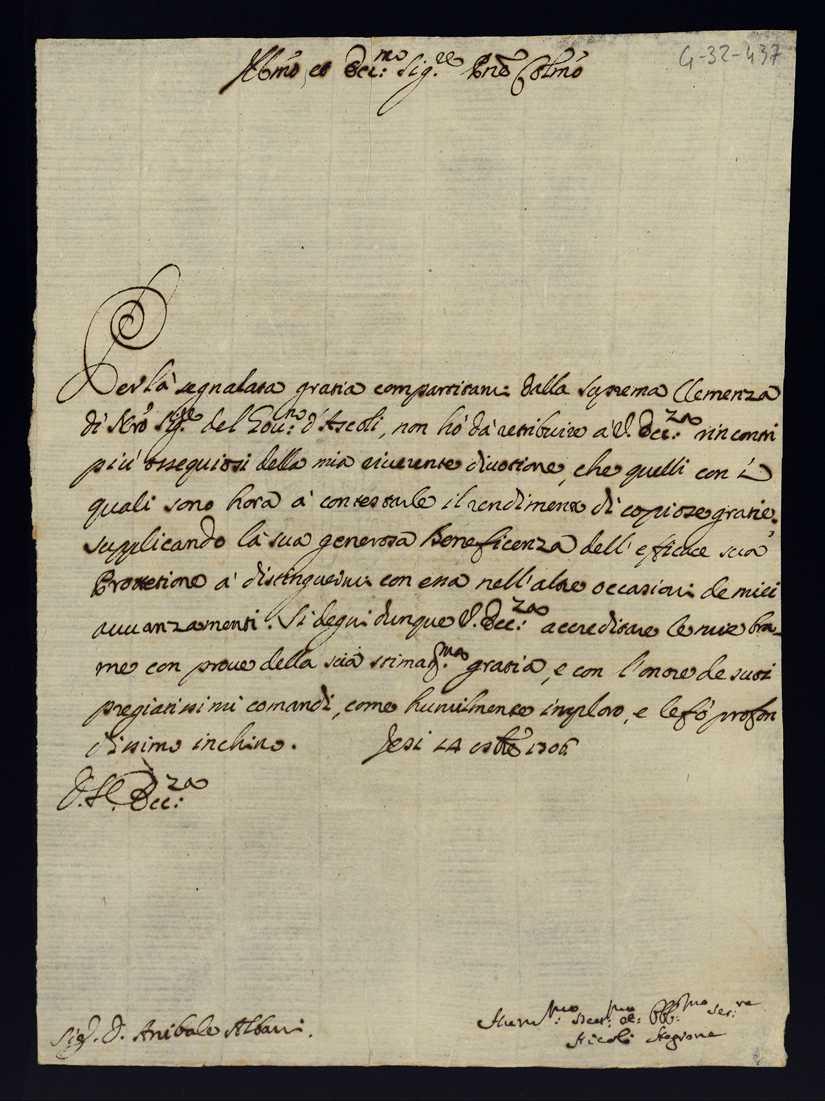 Ill.mo, et Ecc.mo Sig.re Prõn Col.mo
4-32-437
Per la segnalata gratia compartitami dalla suprema Clemenza
di Nrõ Sig.re del Gou.no d'Ascoli, non hò dà retribuire à V. Ecc.za rincontri
più ossequiosi della mia riuerente diuotione, che quelli con i
quali sono hora à contestarle il rendimento di copiose gratie,
supplicando la sua generosa Beneficenza dell' efficace sua
Protettione à distinguermi con essa nell'altre occasioni de miei
auuanzamenti. Si degni dunque V. Ecc.za accreditare le mie bra-
me con proue della sua stimat.ma gratia, e con l'onore de suoi
pregiatissimi comandi, come humilmente imploro, e le fò profon
dissimo inchino. Jesi 14 ottõbre 1706
D. V. Ecc.za
Sig.r D. Anibale Albani.
Hum.mo Deu.mo et Obb.mo Ser.re
Nicolò